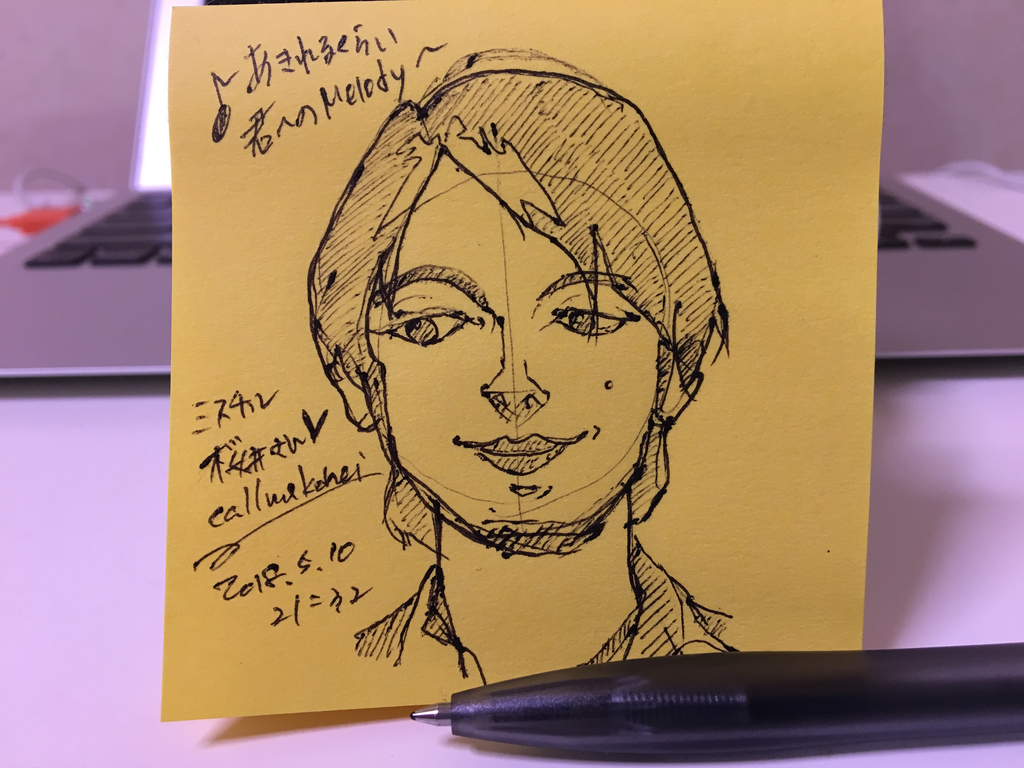 ♪あきれるくらい
君へのMelody〜
ミスチル
桜井さん♥
callmekohei
2018.5.10
21:32